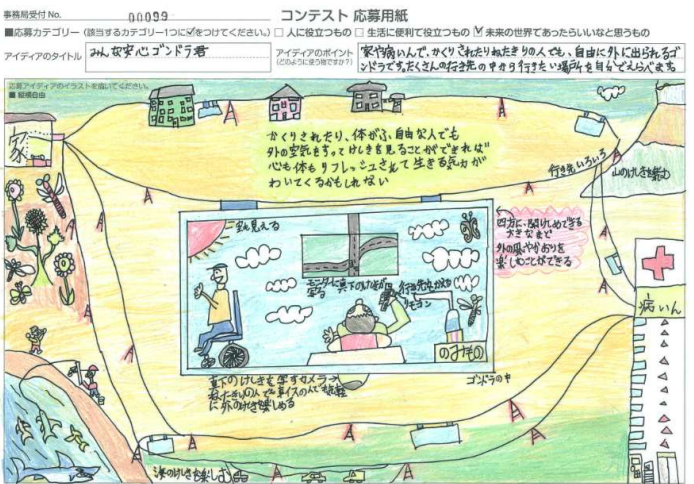 事務局受付 No. 00099
コンテスト 応募用紙
■応募カテゴリー (該当するカテゴリー1つに☑をつけてください。) □ 人に役立つもの □ 生活に便利で役立つもの ☑ 未来の世界であったらいいなと思うもの
アイディアのタイトル
みんな安心ゴンドラ君
アイディアのポイント
(どのように使う物ですか?)
家や病いんで、かくりされたりねたきりの人でも、自由に外に出られるゴ
ンドラです。たくさんの行き先の中から行きたい場所を自分でえらべます。
応募アイディアのイラストを描いてください。
■ 縦横自由
家
かくりされたり、体がふ自由な人でも
外の空気をすってけしきを見ることができれば
心も体もリフレッシュされて生きる気力が
わいてくるかもしれない
行き先いろいろ
山のけしきを楽む
空も見える
モニターに真下のけしきが
写る
行き先をかえる
リモコン
のみもの
四方に、開けしめできる
大きなまど
外の風やかおりを
楽しむことができる
病いん
真下のけしきを写すカメラ
ねたきりの人でも車イスの人でも気軽
に外のけしきを楽しめる
ゴンドラの中
海のけしきを楽しむ